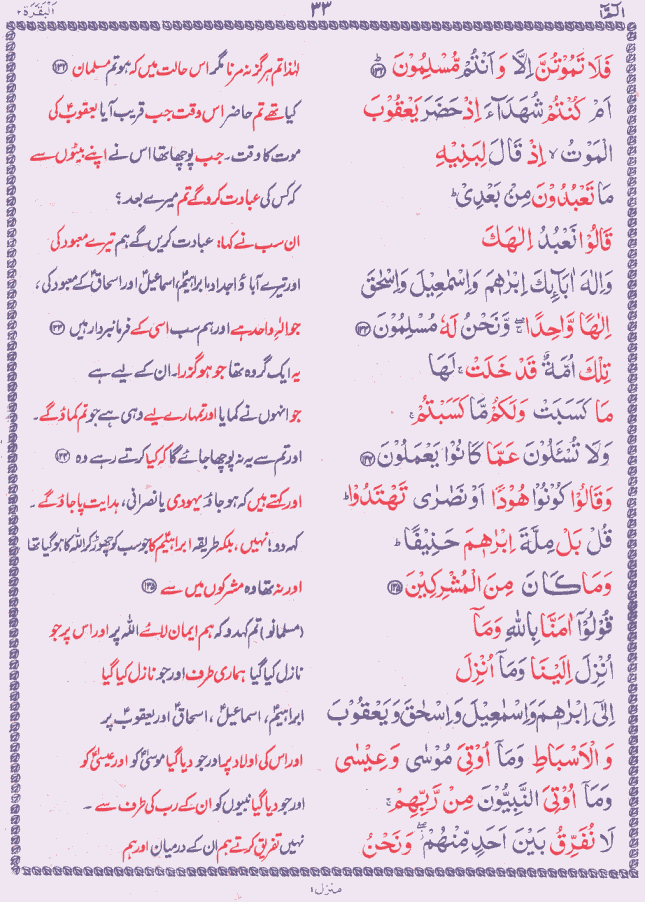 الٓمّٓ ۱ ۳۳ اَلْبَقَرَة ۲
فَلَا تَمُوْتُنَّ اِلَّا وَاَنْتُمْ مُّسْلِمُوْنَ ۝۱۳۲ لہٰذا تم ہرگز نہ مرنا مگر اس حالت میں کہ ہو تم مسلمان ۝۱۳۲
اَمْ كُنْتُمْ شُهَدَآءَ اِذْ حَضَرَ يَعْقُوْبَ کیا تھے تم حاضر اس وقت جب قریب آیا یعقوبؑ کی
الْمَوْتُ ۙ اِذْ قَالَ لِبَنِيْهِ موت کا وقت۔ جب پوچھا تھا اس نے اپنے بیٹوں سے
مَا تَعْبُدُوْنَ مِنْۢ بَعْدِيْ ؕ کہ کس کی عبادت کرو گے تم میرے بعد؟
قَالُوْا نَعْبُدُ اِلٰهَكَ ان سب نے کہا: عبادت کریں گے ہم تیرے معبود کی
وَاِلٰهَ اٰبَآئِكَ اِبْرٰهٖمَ وَاِسْمٰعِيْلَ وَاِسْحٰقَ اور تیرے آباؤ اجداد، ابراہیمؑ، اسماعیلؑ اور اسحاقؑ کے معبود کی،
اِلٰهًا وَّاحِدًا ۖۚ وَّنَحْنُ لَهٗ مُسْلِمُوْنَ ۝۱۳۳ جو الٰہِ واحد ہے اور ہم سب اسی کے فرمانبردار ہیں ۝۱۳۳
تِلْكَ اُمَّةٌ قَدْ خَلَتْ ۚ لَهَا یہ ایک گروہ تھا جو ہو گزرا۔ ان کے لیے ہے
مَا كَسَبَتْ وَلَكُمْ مَّا كَسَبْتُمْ ۚ جو انہوں نے کمایا اور تمہارے لیے وہی ہے جو تم کماؤ گے۔
وَلَا تُسْـَٔلُوْنَ عَمَّا كَانُوْا يَعْمَلُوْنَ ۝۱۳۴ اور تم سے یہ نہ پوچھا جائے گا کہ کیا کرتے رہے وہ ۝۱۳۴
وَقَالُوْا كُوْنُوْا هُوْدًا اَوْ نَصٰرٰى تَهْتَدُوْا ؕ اور کہتے ہیں کہ ہو جاؤ یہودی یا نصرانی، ہدایت پا جاؤ گے۔
قُلْ بَلْ مِلَّةَ اِبْرٰهٖمَ حَنِيْفًا ؕ کہہ دو! نہیں، بلکہ طریقہ ابراہیمؑ کا جو سب کو چھوڑ کر اللہ کا ہو گیا تھا
وَمَا كَانَ مِنَ الْمُشْرِكِيْنَ ۝۱۳۵ اور نہ تھا وہ مشرکوں میں سے ۝۱۳۵
قُوْلُوْۤا اٰمَنَّا بِاللّٰهِ وَمَاۤ (مسلمانو) تم کہہ دو کہ ہم ایمان لائے اللہ پر اور اس پر جو
اُنْزِلَ اِلَيْنَا وَمَاۤ اُنْزِلَ نازل کیا گیا ہماری طرف اور جو نازل کیا گیا
اِلٰٓى اِبْرٰهٖمَ وَاِسْمٰعِيْلَ وَاِسْحٰقَ وَيَعْقُوْبَ ابراہیمؑ، اسماعیلؑ، اسحاقؑ اور یعقوبؑ پر
وَالْاَسْبَاطِ وَمَاۤ اُوْتِيَ مُوْسٰى وَعِيْسٰى اور اس کی اولاد پر اور جو دیا گیا موسیٰؑ کو اور عیسیٰؑ کو
وَمَاۤ اُوْتِيَ النَّبِيُّوْنَ مِنْ رَّبِّهِمْ ۚ اور جو دیا گیا نبیوں کو ان کے رب کی طرف سے ۔
لَا نُفَرِّقُ بَيْنَ اَحَدٍ مِّنْهُمْ ۖ وَنَحْنُ نہیں تفریق کرتے ہم ان کے درمیان اور ہم
منزل ۱